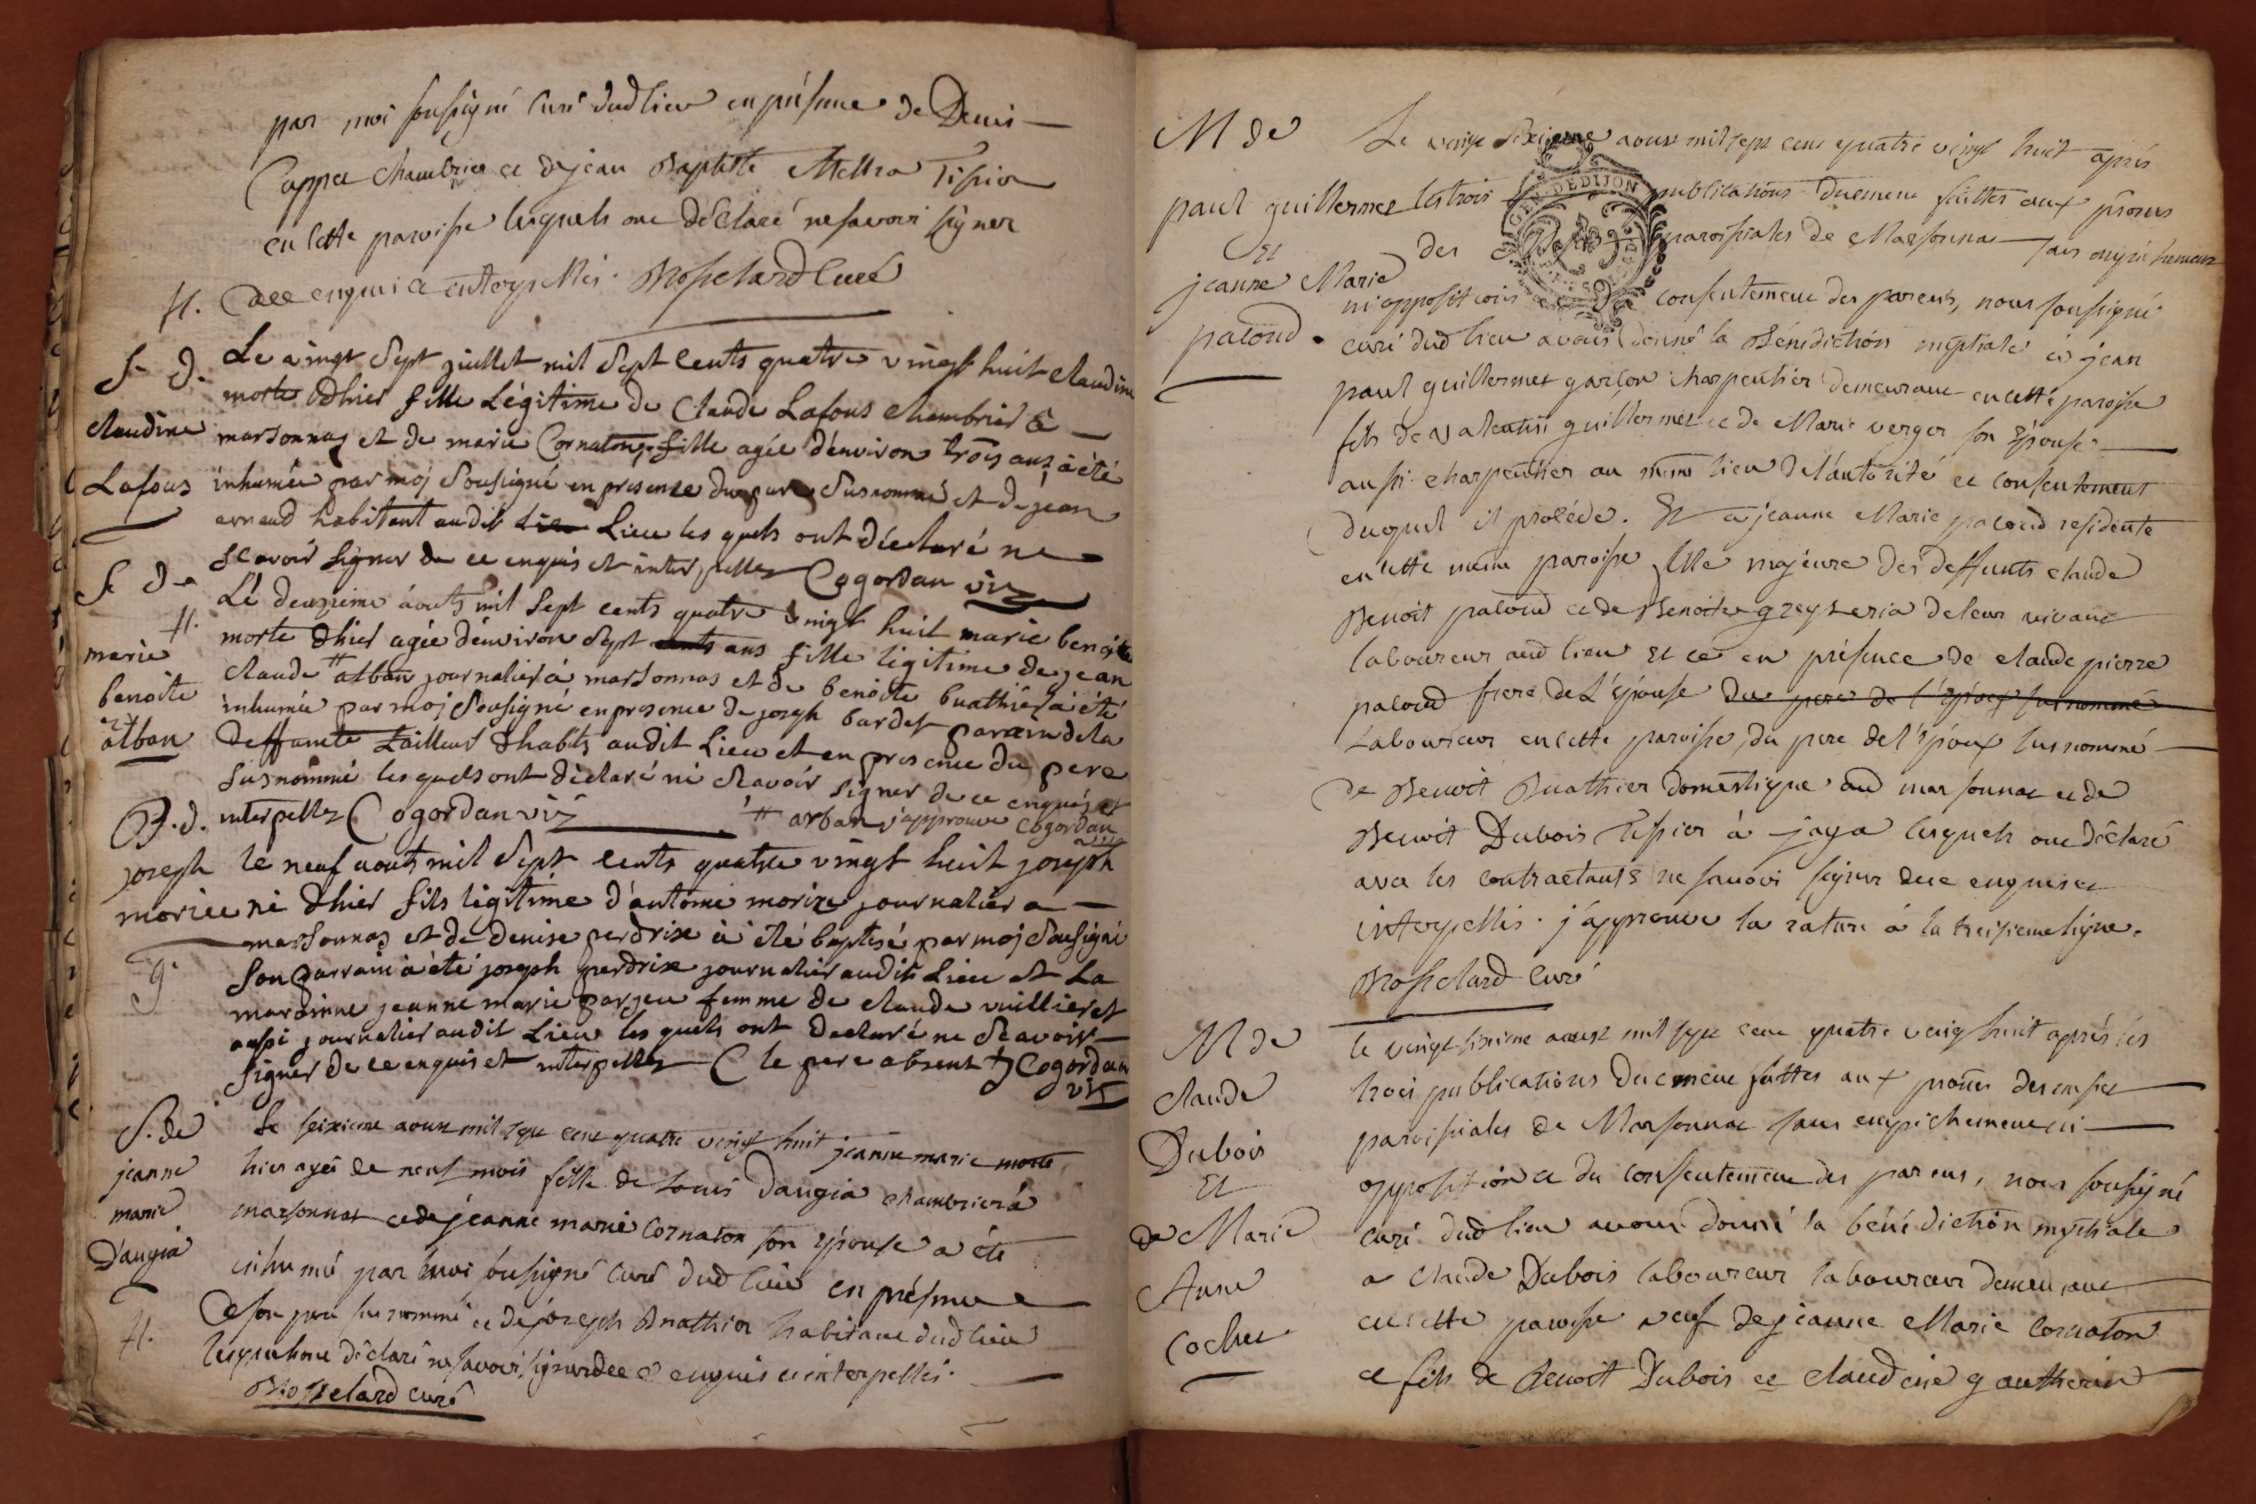 par moi soussigné curé dud lieu en présence de Denis
Cappet chambrier et de jean Baptiste Mettra Tissier
en cette paroisse lesquels ont déclaré ne savoir signer
H. de ce enquis et interpellés. Mosselard Curé
S. d. Le vingt Sept juillet mil Sept Cents quatre vingt huit claudine
morte dhier fille Légitime de Claude Lafous chambrier à
claudine marsonnaz et de marie Cornaton, fille agée d'environ trois ans à été
Lafous inhumée par moj Sousigné en presence du pere Susnommé et de jean
arnaud habitant audit Lieu les quels ont déclaré ne
Scavoir signer de ce enquis et interpellez Cogordan viz
S. d.
H. Le deuxieme aouts mil Sept cents quatre vingt huit marie benoite
morte dhier agée d'environ Sept ans fille légitime de jean
marie claude # alban journalier à marsonnas et de benoite buathier à été
benoite inhumée par moj Sousigné en presence de joseph bardet parrein de la
alban deffunte tailleur d'habits audit Lieu et en presence du pere
susnommé les quels ont déclaré ne Scavoir signer de ce enquis et
interpellez Cogordan viz
# arban j'approuve Cogordan viz
B. d.
joseph le neuf aouts mil Sept Cents quatre vingt huit joseph
morice né dhier fils légitime d'antoine morize journalier a
marsonnaz et de denise perdrix à été baptisé par moj Sousigné
g. Son parrain à été joseph perdrix journalier audit Lieu et La
marainne jeanne marie parjeu femme de claude vuillieret
aussi journalier audit Lieu les quels ont declaré ne Scavoir
signer de ce enquis et interpellez (le pere absent) Cogordan
viz
S. de Le seizieme aoust mil sept cent quatre vingt huit jeanne marie morte
jeanne hier agée de neuf mois fille de Louis Daugia chambrier à
marie marsonnas et de jeanne marie Cornaton son épouse a été
Daugia inhumé par moi soussigné curé dud lieu en présence
de son pere susnommé et de joseph Buathier habitant dud lieu
H. lesquels ont déclaré ne savoir signer de ce enquis et interpellés.
Mosselard curé
M de Le vingt sixieme aoust mil sept cent quatre vingt huit après
paul guillermet les trois publications duement faittes aux prones
et des paroissiales de Marsonnas sans empechement
jeanne Marie ni opposition et du consentement des parents, nous soussigné
pacoud. curé dud lieu avons donné la Bénédiction nuptiale à jean
paul guillermet garçon charpentier demeurant en cette paroisse
fils de valentin guillermet et de Marie verger son épouse
aussi charpentier au même lieu de l'autorité et consentement
duquel il procéde. Et a jeanne Marie pacoud residente
en cette même paroisse fille majeure des deffunts claude
Benoit pacoud et de Benoite greyseria de leur vivant
laboureur aud lieu Et ce en présence de claude pierre
pacoud frere de L'épouse du pere de l'époux susnommé
Laboureur en cette paroisse, du pere de l'époux susnommé
de Benoit Buathier domestique aud marsonnac et de
Benoit Dubois Tissier à jaya lesquels ont déclaré
avec les contractants ne savoir signer de ce enquis et
interpellés. j'approuve la rature à la treisieme ligne.
Mosselard curé
M de le vingt sixieme aoust mil sept cent quatre vingt huit après les
claude trois publications duement faittes aux prones des messes
Dubois paroissiales de Marsonnac sans empechement ni
Et opposition et du consentement des parens, nous soussigné
de Marie curé dud lieu avons donné la bénédiction nuptiale
Anne a claude Dubois laboureur laboureur demeurant
Cochet en cette paroisse veuf de jeanne Marie Cornaton
et fils de Benoit Dubois et claudine gautherin